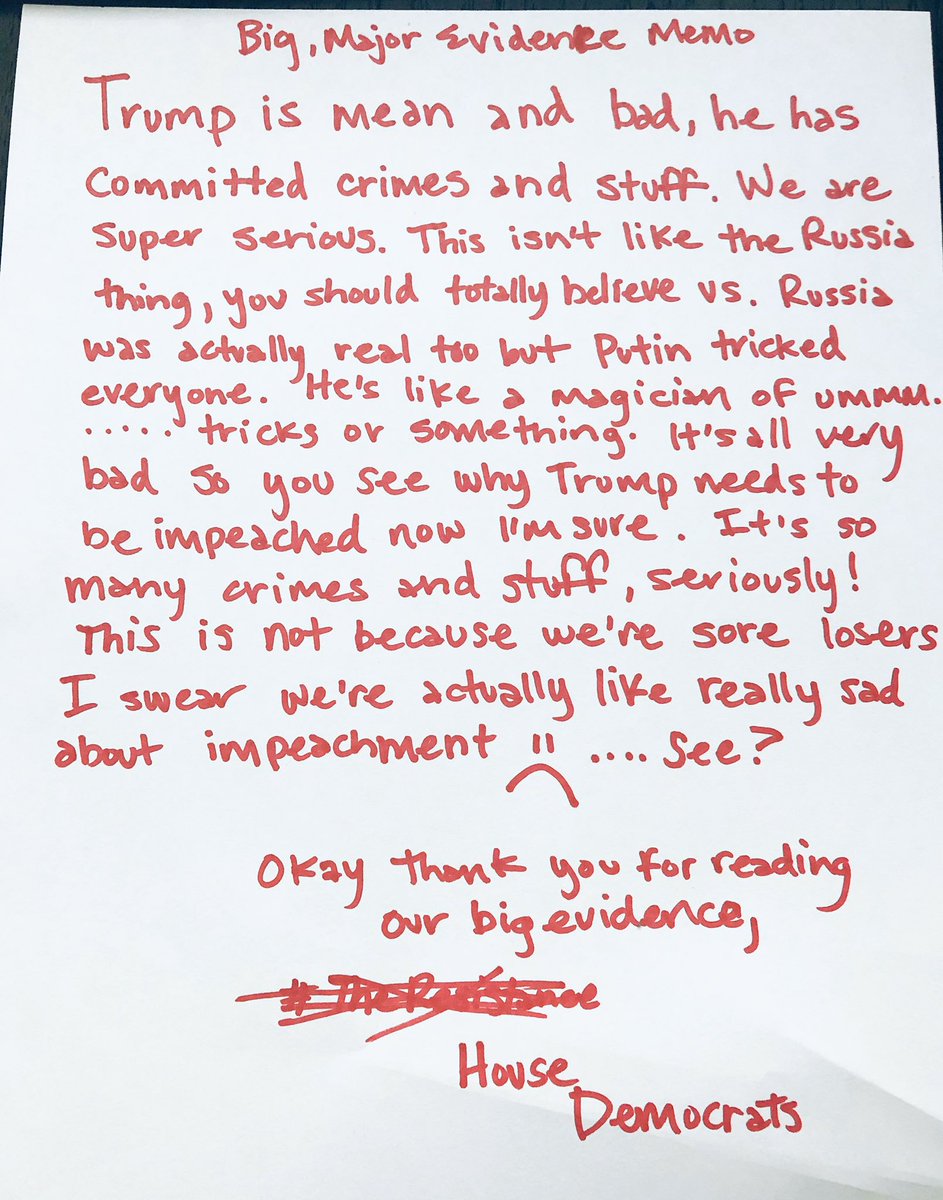 Big, Major Evidence Memo
Trump is mean and bad, he has
committed crimes and stuff. We are
super serious. This isn't like the Russia
thing, you should totally believe us. Russia
was actually real too but Putin tricked
everyone. He's like a magician of ummm.
..... tricks or something. It's all very
bad so you see why Trump needs to
be impeached now I'm sure. It's so
many crimes and stuff, seriously!
This is not because we're sore losers
I swear we're actually like really sad
about impeachment .... see?
Okay thank you for reading
our big evidence,
#TheResistance
House
Democrats